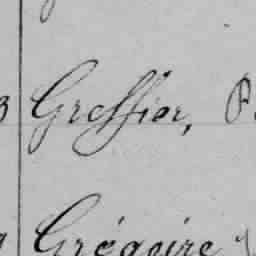 3 Greffier, P.
Grégoire